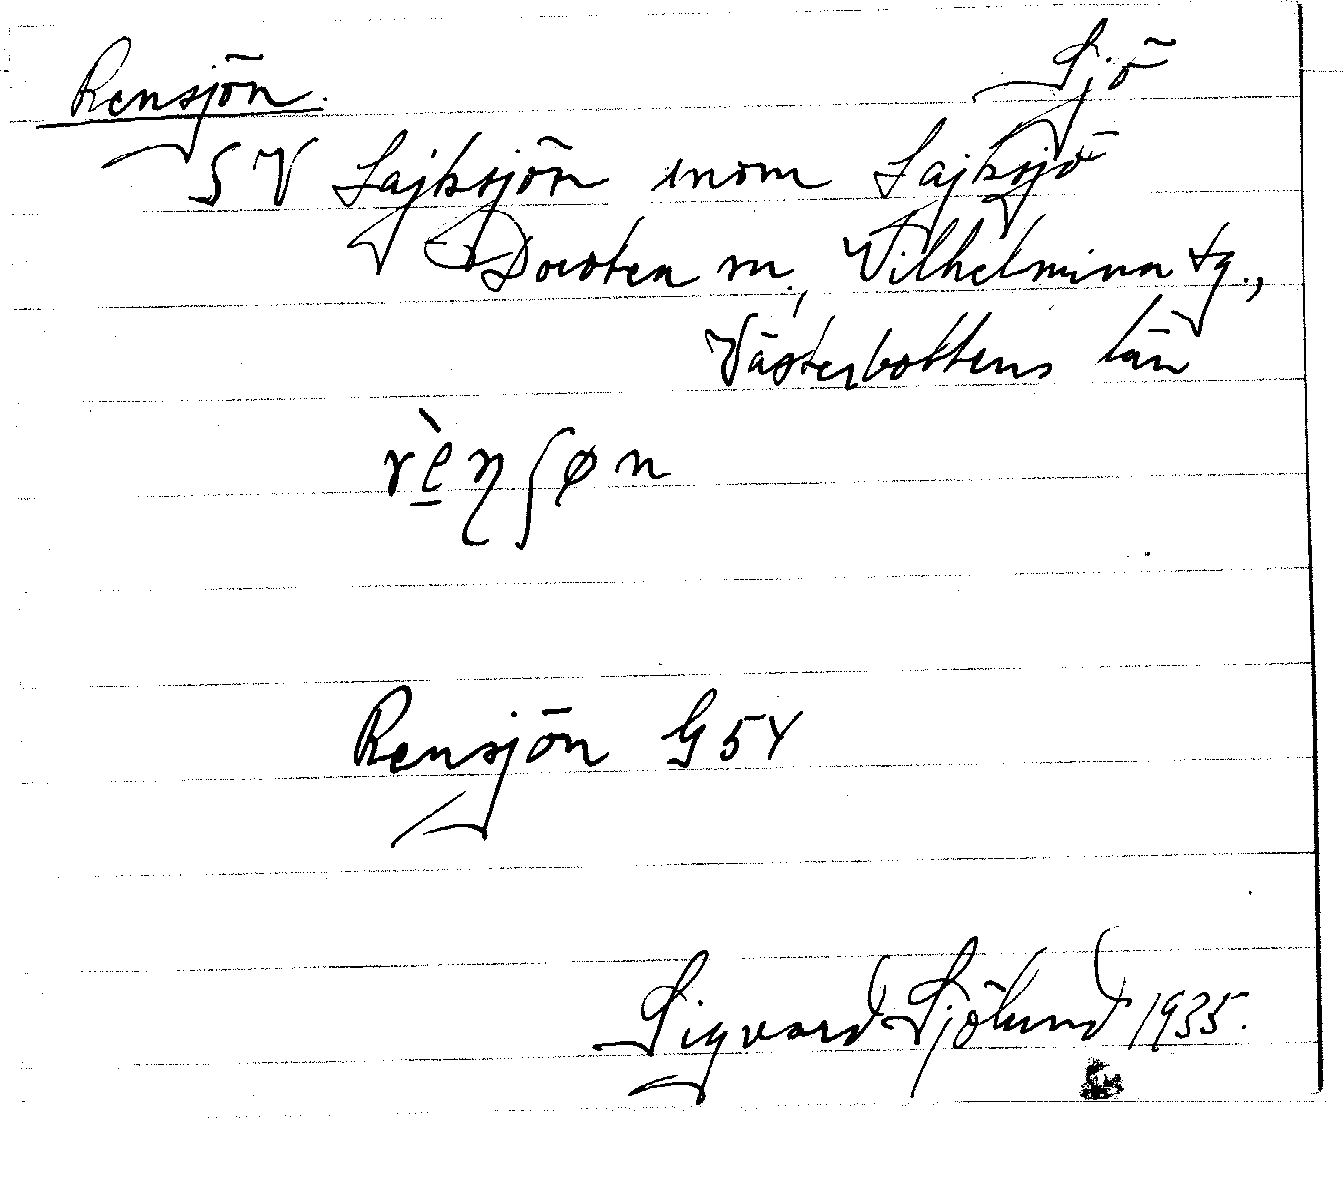 Rensjön. Sjö
SV Lajksjön inom Lajksjö
Dorotea sn., Vilhelmina tg.,
Västerbottens län
rè̠nʃøn
Rensjön G5Y
Sigvard Sjölund 1935.